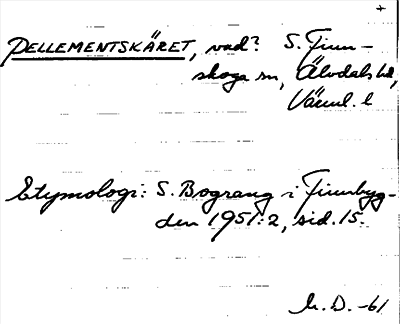 +
PELLEMENTSKÄRET, vad? S. Finn-
skoga sn, Älvdals hd,
Värml. l
Etymologi: S. Bograng i Finnbyg-
den 1951:2, sid. 15.
M. D. -61